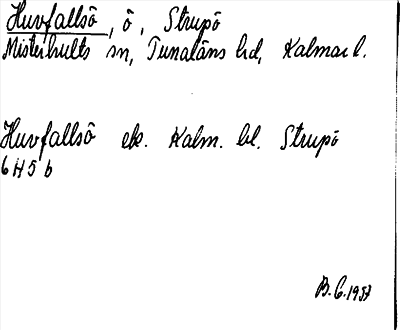 Huvfallsö, ö, Strupö
Misterhults sn, Tunaläns hd, Kalmar l.
Huvfallsö ek. Kalm. bl. Strupö
6 H 5 b
B.G. 1937